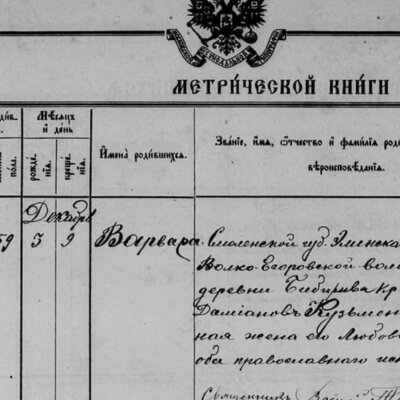 МЕТРИ́ЧЕСКОЙ КНИ́ГИ
Мѣсяцъ
и҆ день
рожде-
нія.
креще-
нія.
пола.
Имена̀ родившихся.
Званіе, имя, отчество и фамилія род
вѣроисповѣданія.
Декабрь
59 3 9 Варвара
Смоленской губ. Вяземска
Волко-Егоровской вол
деревни Бибирева кр
Даміановъ Кузьмен
ная жена его Любов
оба православнаго исп
Священникъ